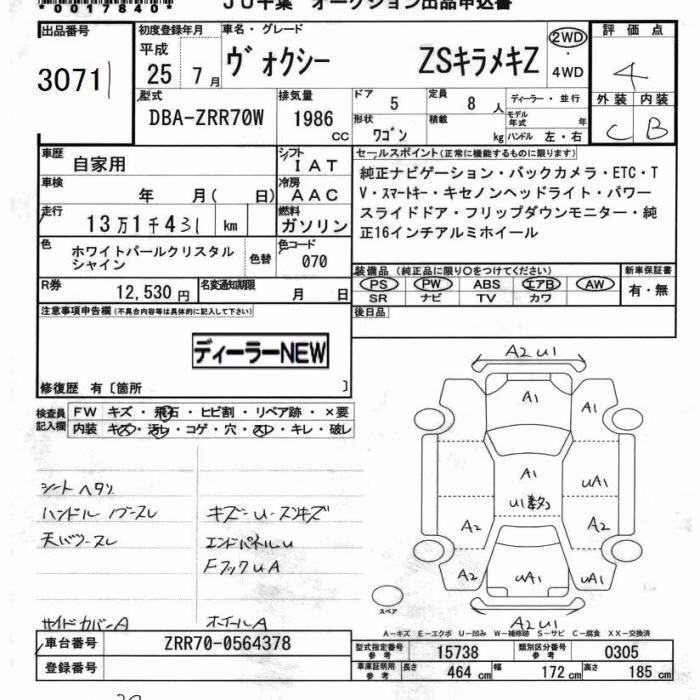 *0017840*
JU千葉 オークション出品申込書
出品番号 初度登録年月 車名・グレード 評価点
平成 25年 7月 ヴォクシー ZSキラメキZ 2WD・4WD 4
30711
型式 DBA-ZRR70W 排気量 1986 CC ドア 5 定員 8人 ディーラー・並行 外装 内装
形状 ワゴン 積載 kg モデル年式 年 ハンドル 左・右 C B
車歴 自家用 シフト IAT セールスポイント(正常に機能するものに限ります)
車検 年 月(日) 冷房 AAC 純正ナビゲーション・バックカメラ・ETC・T
V・スマートキー・キセノンヘッドライト・パワー
走行 13万1千431 km 燃料 ガソリン スライドドア・フリップダウンモニター・純
正16インチアルミホイール
色 ホワイトパールクリスタル
シャイン 色替 色コード 070
装備品(純正品に限り○をつけてください) 新車保証書
R券 12,530円 名変通知期限 月 日 PS PW ABS エアB AW 有・無
SR ナビ TV カワ
注意事項申告欄(不具合内容等は具体的に記入して下さい) 後日品
ディーラーNEW
修復歴 有〔箇所 〕
検査員 FW キズ・飛石・ヒビ割・リペア跡・×要
記入欄 内装 キズ・汚レ・コゲ・穴・スレ・キレ・破レ
A2 U1
A1 A1
A1 UA1
U1数2
A2 A2
A2 UA1 UA1
A2 U1
スペア
シートヘタリ
ハンドル ノブースレ キズーU-スリキズ
天バリースレ エンドパネルU
FフックUA
サイドカバーA ホイールA
A-キズ E-エクボ U-凹み W-補修跡 S-サビ C-腐食 XX-交換済
車台番号 ZRR70-0564378 型式指定番号 参考 15738 類別区分番号 参考 0305
登録番号 車庫証明用 参考 長さ 464 cm 幅 172 cm 高さ 185 cm